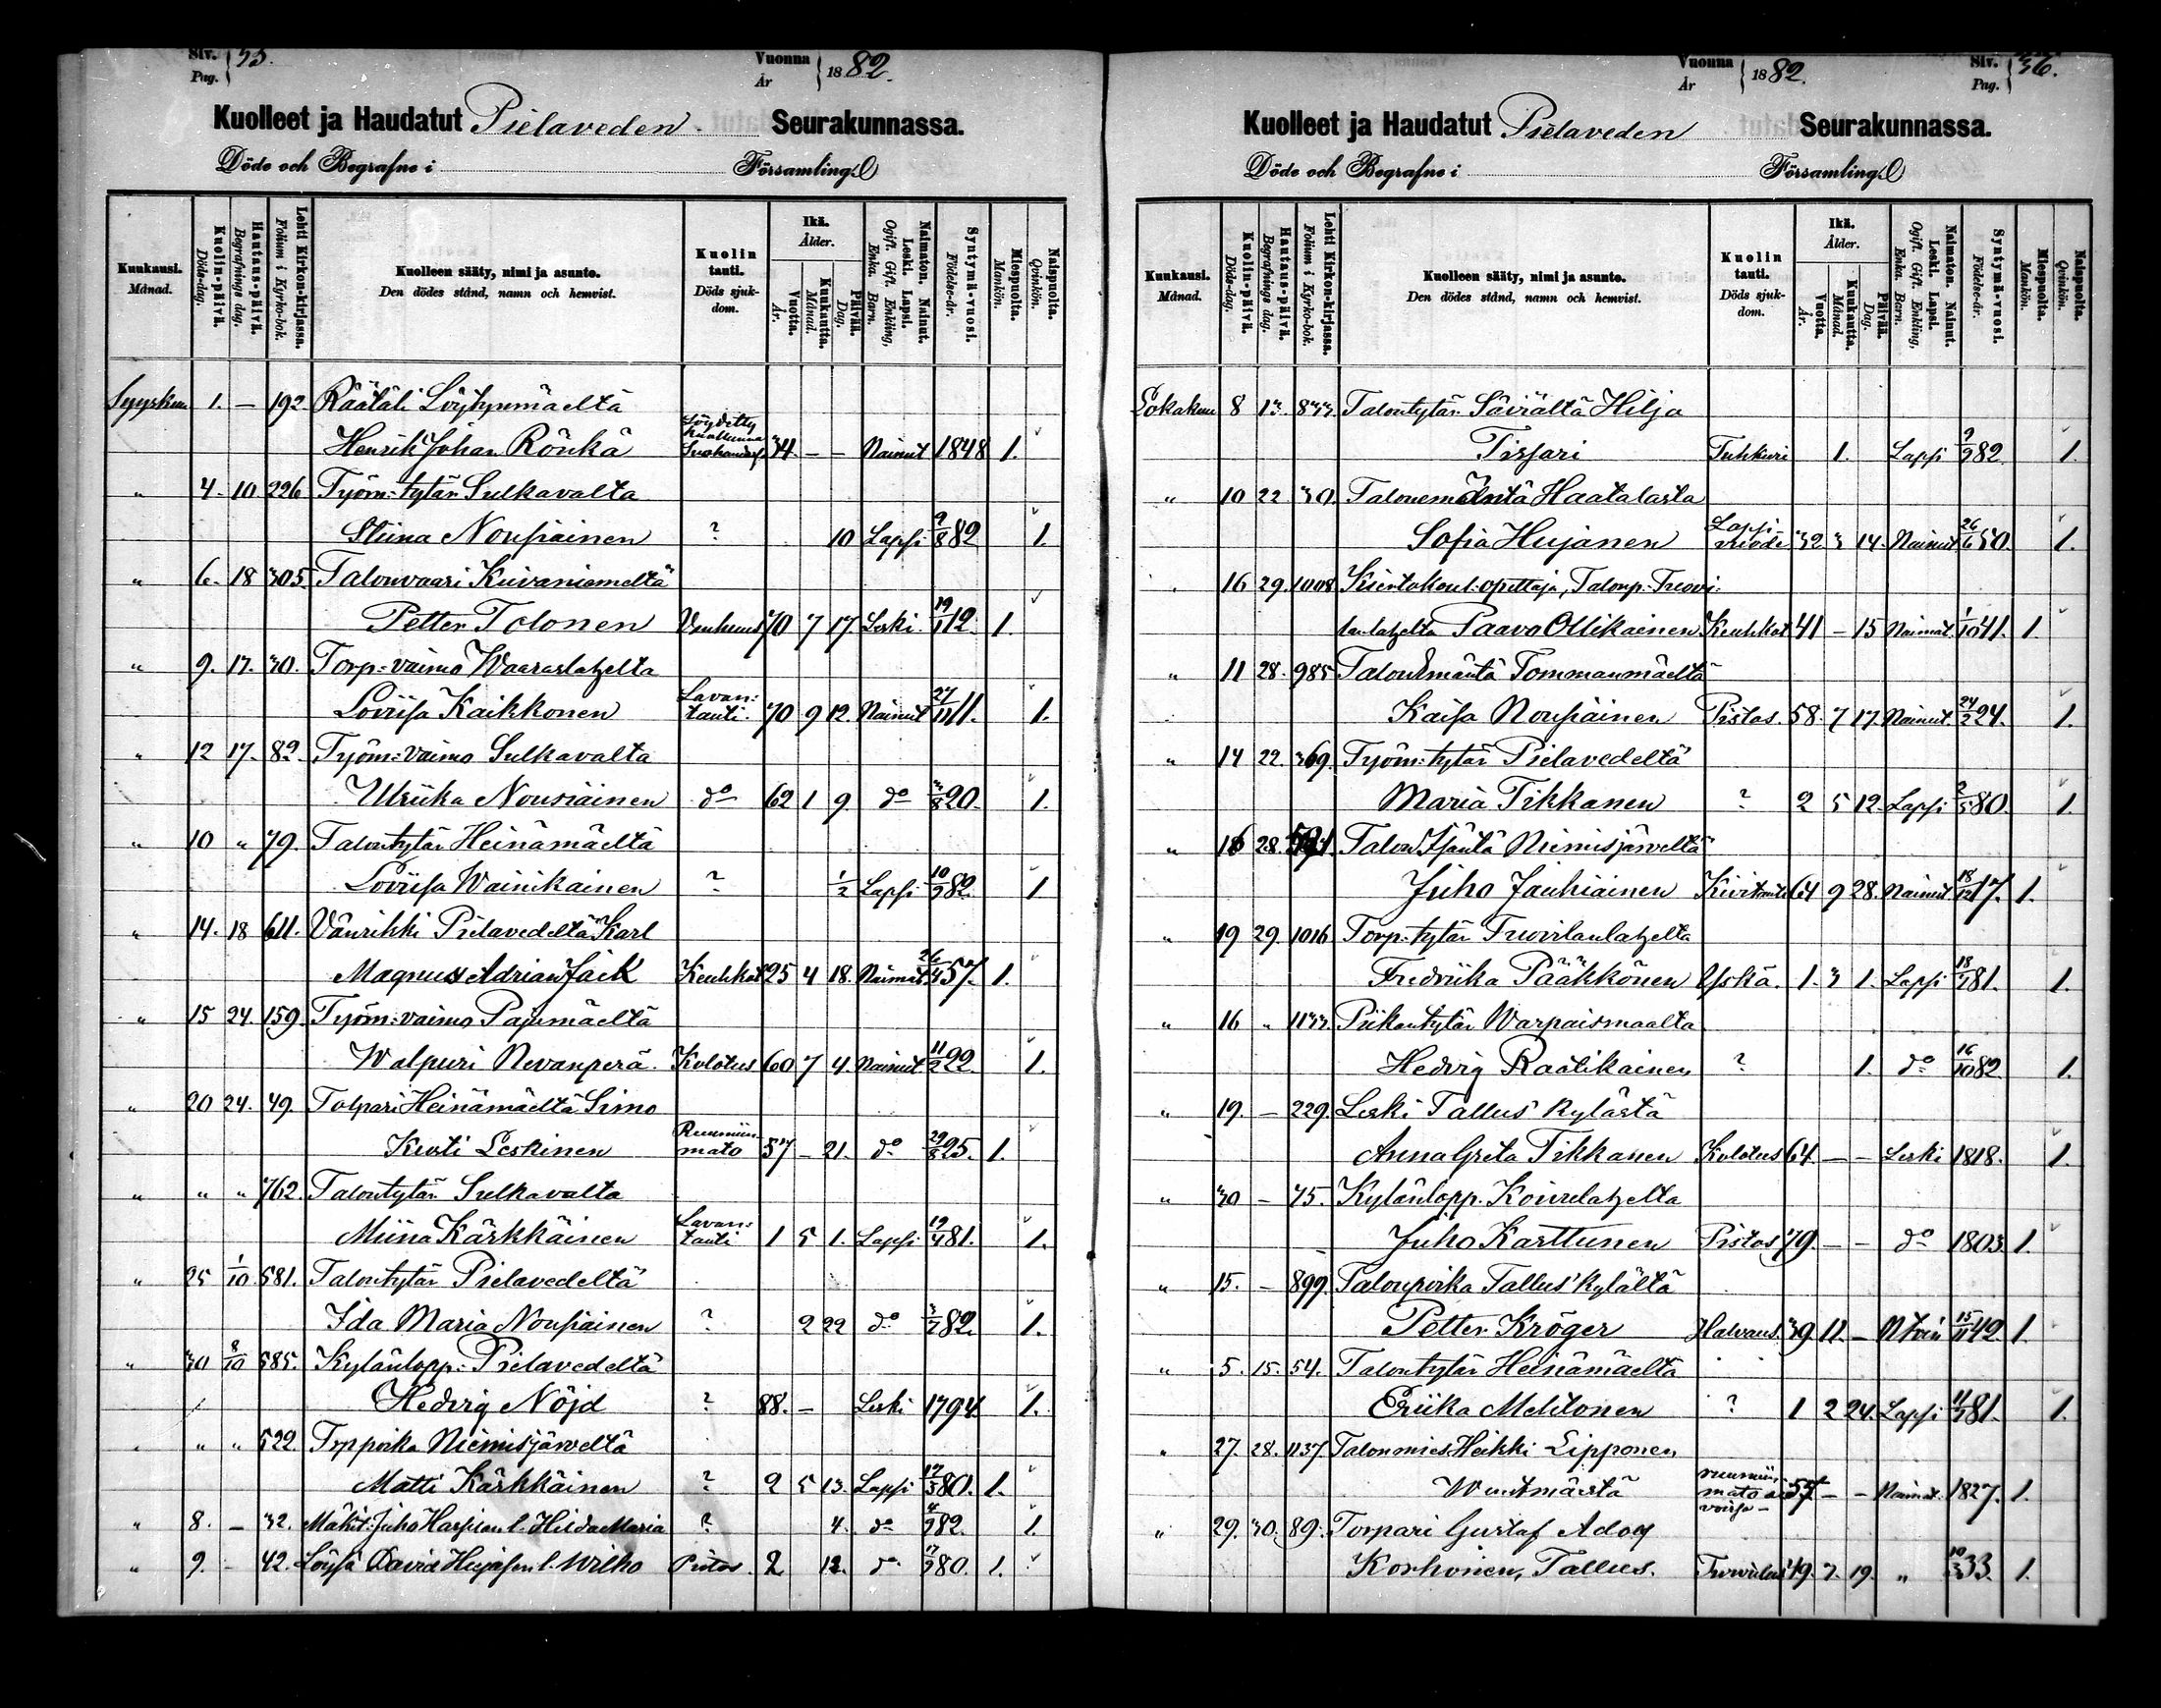 Siv. Pag. 35.
Vuonna År 1882.
Kuolleet ja Haudatut Pielaveden Seurakunnassa.
Döde och Begrafne i Församling.
Kuukausi. Månad.
Kuolin-päivä. Döds-dag.
Hautaus-päivä. Begrafnings dag.
Lehti Kirkon-kirjassa. Folium i Kyrko-bok.
Kuolleen sääty, nimi ja asunto. Den dödes stånd, namn och hemvist.
Kuolin tauti. Döds sjukdom.
Ikä. Ålder.
Vuotta. År.
Kuukautta. Månad.
Päivää. Dag.
Naimaton. Nainut. Leski. Lapsi. Ogift. Gift. Enkling, Enka. Barn.
Syntymä-vuosi. Födelse-år.
Miespuolta. Mankön.
Naispuolta. Qvinkön.
Syyskuu 1. — 192. Räätäli Löytynmäeltä
Henrik Johan Rönkä Löydetty kuolleena 34 — — Nainut 1848 1.
" 4. 10 226 Työm: tytär Sulkavalta
Stiina Nousiainen ? 10 Lapsi 9/8 82 1.
" 6. 18 305. Talonvaari Kiivaniemeltä
Petter Tolonen Vanhuus 70 7 17. Leski. 19/1 12. 1.
" 9. 17. 30. Torp: vaimo Waaraslahelta
Loviisa Kaikkonen Lavan: tauti. 70 9 12. Nainut 27/11 11. 1.
" 12 17. 82. Työm: vaimo Sulkavalta
Ulriika Nousiainen do 62 1 9. do 3/8 20. 1.
" 10 " 79. Talontytär Heinämäeltä
Loviisa Wainikainen ? 1/2 Lapsi 10/9 82. 1
" 14. 18 611. Vänrikki Pielavedeltä Karl
Magnus Adrian Jäik Keuhkot 25 4 18. Naimat. 26/4 57. 1.
" 15 24. 159. Työm: vaimo Pajumäeltä
Walpuri Nevanperä. Kolotus 60 7 4. Nainut 11/2 22. 1.
" 20 24. 49. Torpari Heinämäeltä Simo
Kusti Leskinen Ruumiin- mato 57 — 21. do 29/8 25. 1.
" " " 762. Talontytär Sulkavalta
Miina Kärkkäinen Lavan: tauti 1 5 1. Lapsi 19/4 81. 1.
" 25 1/10 581. Talontytär Pielavedeltä
Ida Maria Nousiainen ? 2 22 do 3/7 82. 1.
" 30 8/10 585. Kylänlopp: Pielavedeltä
Hedvig Nöjd ? 88. — Leski 1794. 1.
" " " 522. Torppoika Niemisjärveltä
Matti Kärkkäinen ? 2 5 13. Lapsi 17/3 80. 1.
" 8. — 32. Mäkit: Juho l. Hilda Maria ? 4. do 4/9 82. 1.
" 9. — 42. David l. Wilho Pistos. 2 12. do 80. 1.
Vuonna År 1882.
Siv. Pag. 36.
Kuolleet ja Haudatut Pielaveden Seurakunnassa.
Döde och Begrafne i Församling.
Kuukausi. Månad.
Kuolin-päivä. Döds-dag.
Hautaus-päivä. Begrafnings dag.
Lehti Kirkon-kirjassa. Folium i Kyrko-bok.
Kuolleen sääty, nimi ja asunto. Den dödes stånd, namn och hemvist.
Kuolin tauti. Döds sjukdom.
Ikä. Ålder.
Vuotta. År.
Kuukautta. Månad.
Päivää. Dag.
Naimaton. Nainut. Leski. Lapsi. Ogift. Gift. Enkling, Enka. Barn.
Syntymä-vuosi. Födelse-år.
Miespuolta. Mankön.
Naispuolta. Qvinkön.
Lokakuu 8 13. 833. Talontytär Säviältä Hilja
Tissari Tuhkuri 1. Lapsi 9/9 82 1.
" 10 22 30. Talonemäntä Haatalasta
Sofia Hujanen Lapsi- vuode 32 3 14. Nainut 26/6 50. 1.
" 16 29. 1008. Kiertokoul: opettaja, Talonp. Tuovi-
lanlahelta Paavo Ollikainen Keuhkot 41 — 15 Naimat. 1/10 41. 1.
" 11 28. 985 Talonemäntä Tommanmäeltä
Kaisa Nousiainen Pistos. 58. 7 17. Nainut. 24/2 24. 1.
" 14 22. 369. Työm: tytär Pielavedeltä
Maria Tikkanen ? 2 5 12. Lapsi 2/5 80. 1.
" 16 28. Talon Isäntä Niemisjärveltä
Juho Jauhiainen Kivitauti 64 9 28. Nainut. 18/12 17. 1.
" 19 29. 1016 Torp: tytär Tuovilanlahelta
Fredriika Pääkkönen Yskä. 1. 3 1. Lapsi 18/7 81. 1.
" 16 " 1133. Piikantytär Warpaismaalta
Hedvig Raatikainen ? 1. do 16/10 82. 1.
" 19. — 229. Leski Tallus' kylästä
Anna Greta Tikkanen Kolotus 64. — — Leski 1818. 1.
" 30 — 75. Kylänlopp. Koivulahelta
Juho Karttunen Pistos 79. — — do 1803. 1.
" 15. — 899. Talonpoika Tallus' kylältä
Petter Kröger Halvaus. 39 11. — 15/11 42 1.
" 5. 15. 54. Talontytär Heinämäeltä
Eriika Melitonen ? 1 2 24. Lapsi 11/7 81. 1.
" 27. 28. 1137. Talonmies Heikki Lipponen,
ruumiin- mato 57 — — Naimat. 1827. 1.
" 29. 30. 89. Torpari Gustaf Adolf
Korhonen, Tallus. 49. 7. 19. " 10/3 33. 1.